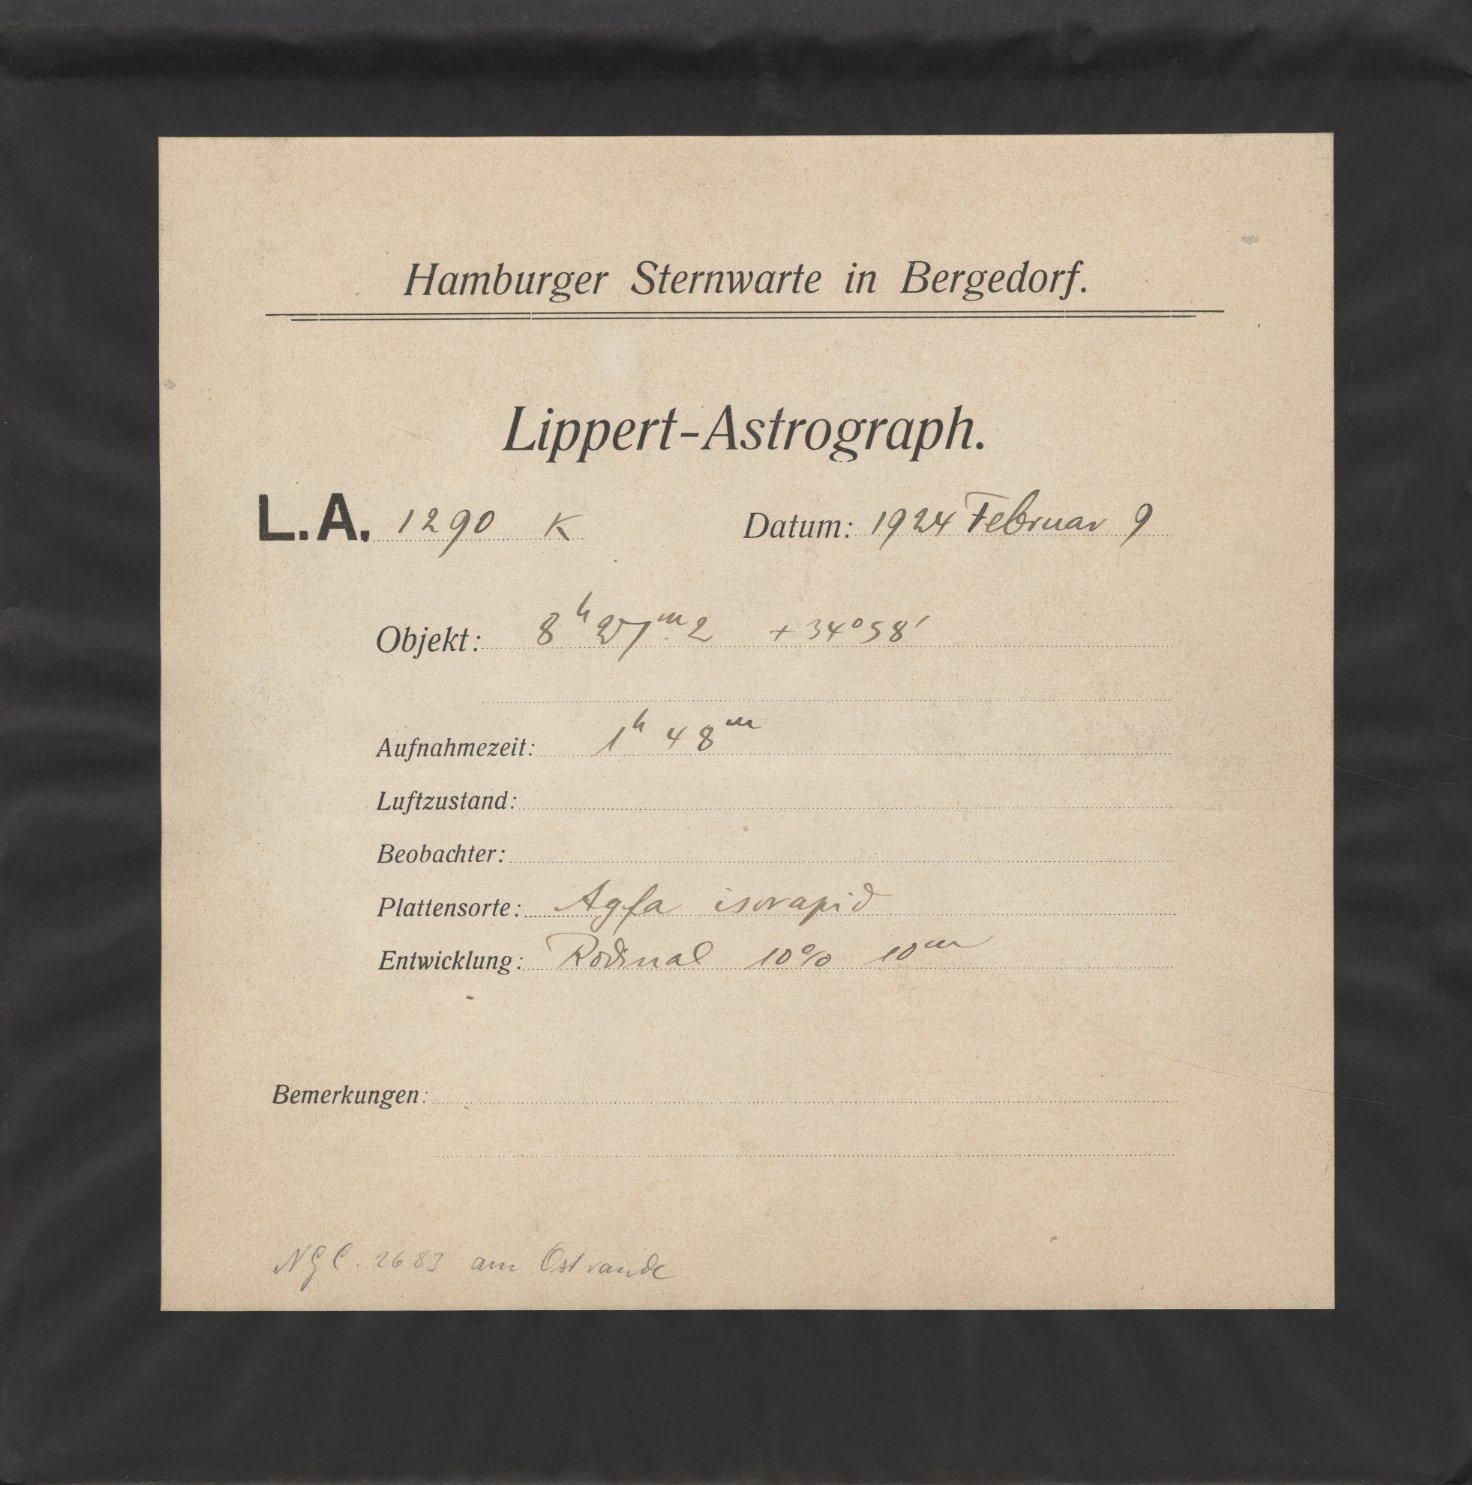 Hamburger Sternwarte in Bergedorf.
Lippert-Astrograph.
L.A. 1290 K Datum: 1924 Februar 9
Objekt: 8h 27m.2 +34°58'
Aufnahmezeit: 1h 48m
Luftzustand:
Beobachter:
Plattensorte: Agfa isorapid
Entwicklung: Rodinal 10% 10m
Bemerkungen:
NGC. 2683 am Ostrande